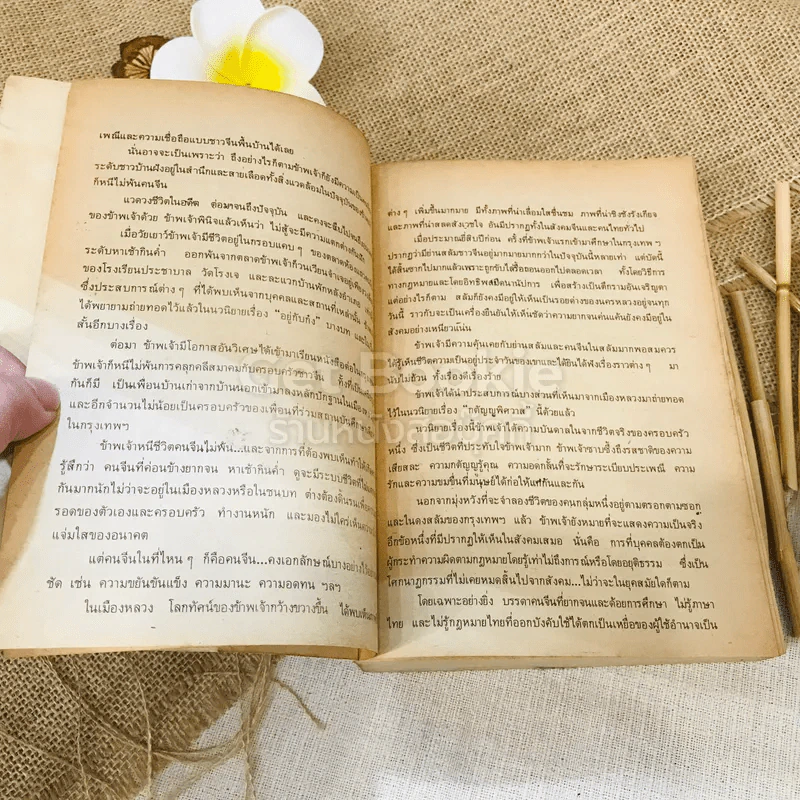 เพณีและความเชื่อถือแบบชาวจีนพื้นบ้านได้เลย
นั่นอาจจะเป็นเพราะว่า ถึงอย่างไรก็ตามข้าพเจ้าก็ยังมีความเป็นคน
ระดับชาวบ้านฝังอยู่ในสำนึกและสายเลือดทั้งสิ่งแวดล้อมในปัจจุบันของข้า
ก็หนีไม่พ้นคนจีน
แวดวงชีวิตในอดีต ต่อมาจนถึงปัจจุบัน และคงจะสืบไป
ของข้าพเจ้าด้วย ข้าพเจ้าพินิจแล้วเห็นว่า ไม่สู้จะมีความแตกต่างกันนัก
เมื่อวัยเยาว์ข้าพเจ้ามีชีวิตอยู่ในกรอบแคบ ๆ ของตลาดห้อง
ระดับหาเช้ากินค่ำ ออกพ้นจากตลาดข้าพเจ้าก็วนเวียนจำเจอยู่
ของโรงเรียนประชาบาล วัดโรงเจ และละแวกบ้านพักหลังอำเภอ
ซึ่งประสบการณ์ต่าง ๆ ที่ได้พบเห็นจากบุคคลและสถานที่เหล่านั้น
ได้พยายามถ่ายทอดไว้แล้วในนวนิยายเรื่อง “อยู่กับก๋ง” บางบท และใน
สั้นอีกบางเรื่อง
ต่อมา ข้าพเจ้ามีโอกาสอันวิเศษได้เข้ามาเรียนหนังสือต่อใน
ข้าพเจ้าก็หนีไม่พ้นการคลุกคลีสมาคมกับครอบครัวชาวจีน ทั้งที่เป็น
กันก็มี เป็นเพื่อนบ้านเก่าจากบ้านนอกเข้ามาลงหลักปักฐานในเมือง
และอีกจำนวนไม่น้อยเป็นครอบครัวของเพื่อนที่ร่วมสถาบันศึกษา
ในกรุงเทพฯ
ข้าพเจ้าหนีชีวิตคนจีนไม่พ้น...และจากการที่ต้องพบเห็นทำให้
รู้สึกว่า คนจีนที่ค่อนข้างยากจน หาเช้ากินค่ำ ดูจะมีระบบชีวิตที่ไม่
กันมากนักไม่ว่าจะอยู่ในเมืองหลวงหรือในชนบท ต่างต้องดิ้นรนเพื่อ
รอดของตัวเองและครอบครัว ทำงานหนัก และมองไม่ใคร่เห็นความ
แจ่มใสของอนาคต
แต่คนจีนในที่ไหน ๆ ก็คือคนจีน...คงเอกลักษณ์บางอย่างไว้
ชัด เช่น ความขยันขันแข็ง ความมานะ ความอดทน ฯลฯ
ในเมืองหลวง โลกทัศน์ของข้าพเจ้ากว้างขวางขึ้น ได้พบเห็น
ต่าง ๆ เพิ่มขึ้นมากมาย มีทั้งภาพที่น่าเลื่อมใสชื่นชม ภาพที่น่าชิงชังรังเกียจ
และภาพที่น่าสลดสังเวชใจ อันมีปรากฏทั้งในสังคมจีนและคนไทยทั่วไป
เมื่อประมาณยี่สิบปีก่อน ครั้งที่ข้าพเจ้าแรกเข้ามาศึกษาในกรุงเทพ ฯ
ปรากฏว่ามีย่านสลัมชาวจีนอยู่มากมายมากกว่าในปัจจุบันนี้หลายเท่า แต่บัดนี้
ได้สิ้นซากไปมากแล้วเพราะถูกขับไล่รื้อถอนออกไปตลอดเวลา ทั้งโดยวิธีการ
ทางกฎหมายและโดยอิทธิพลมืดนานัปการ เพื่อสร้างเป็นตึกรามอันเจริญตา
แต่อย่างไรก็ตาม สลัมก็ยังคงมีอยู่ให้เห็นเป็นรอยด่างของนครหลวงอยู่จนทุก
วันนี้ ราวกับจะเป็นเครื่องยืนยันให้เห็นชัดว่าความยากจนค่นแค้นยังคงมีอยู่ใน
สังคมอย่างเหนียวแน่น
ข้าพเจ้ามีความคุ้นเคยกับย่านสลัมและคนจีนในสลัมมากพอสมควร
ได้รู้เห็นชีวิตความเป็นอยู่ประจำวันของเขาและได้ยินได้ฟังเรื่องราวต่าง ๆ มา
นับไม่ถ้วน ทั้งเรื่องดีเรื่องร้าย
ข้าพเจ้าได้นำประสบการณ์บางส่วนที่เห็นมาจากเมืองหลวงมาถ่ายทอด
ไว้ในนวนิยายเรื่อง “กตัญญูพิศวาส” นี้ด้วยแล้ว
นวนิยายเรื่องนี้ข้าพเจ้าได้ความบันดาลใจจากชีวิตจริงของครอบครัว
หนึ่ง ซึ่งเป็นชีวิตที่ประทับใจข้าพเจ้ามาก ข้าพเจ้าซาบซึ้งถึงรสชาติของความ
เสียสละ ความกตัญญูรู้คุณ ความอดกลั้นที่จะรักษาระเบียบประเพณี ความ
รักและความขมขื่นที่มนุษย์ได้ก่อให้แก่กันและกัน
นอกจากมุ่งหวังที่จะจำลองชีวิตของคนกลุ่มหนึ่งอยู่ตามตรอกตามซอก
และในดงสลัมของกรุงเทพฯ แล้ว ข้าพเจ้ายังหมายที่จะแสดงความเป็นจริง
อีกข้อหนึ่งที่มีปรากฏให้เห็นในสังคมเสมอ นั่นคือ การที่บุคคลต้องตกเป็น
ผู้กระทำความผิดตามกฎหมายโดยรู้เท่าไม่ถึงการณ์หรือโดยอยุติธรรม ซึ่งเป็น
โศกนาฏกรรมที่ไม่เคยหมดสิ้นไปจากสังคม...ไม่ว่าจะในยุคสมัยใดก็ตาม
โดยเฉพาะอย่างยิ่ง บรรดาคนจีนที่ยากจนและด้อยการศึกษา ไม่รู้ภาษา
ไทย และไม่รู้กฎหมายไทยที่ออกบังคับใช้ได้ตกเป็นเหยื่อของผู้ใช้อำนาจเป็น